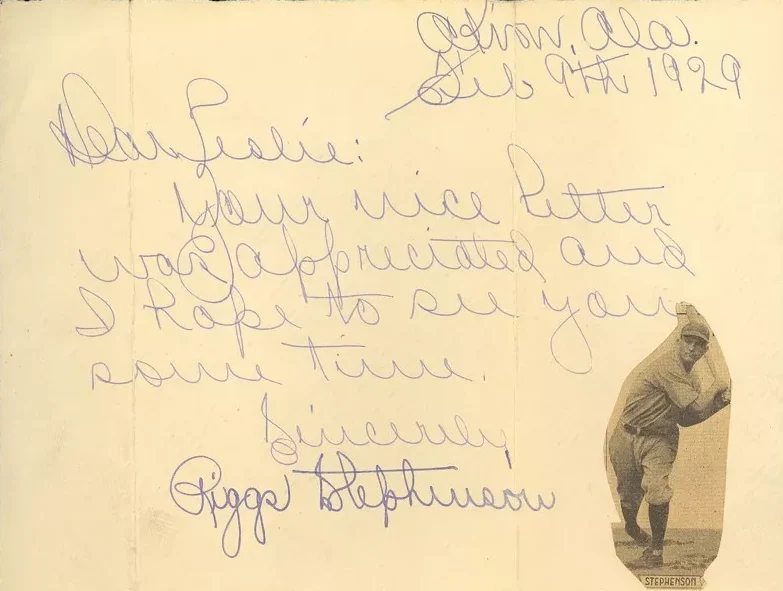 Akron, Ala.
Feb 9th 1929
Dear Leslie:
Your nice letter
was appreciated and
I hope to see you
some time.
Sincerely,
Riggs Stephenson
STEPHENSON